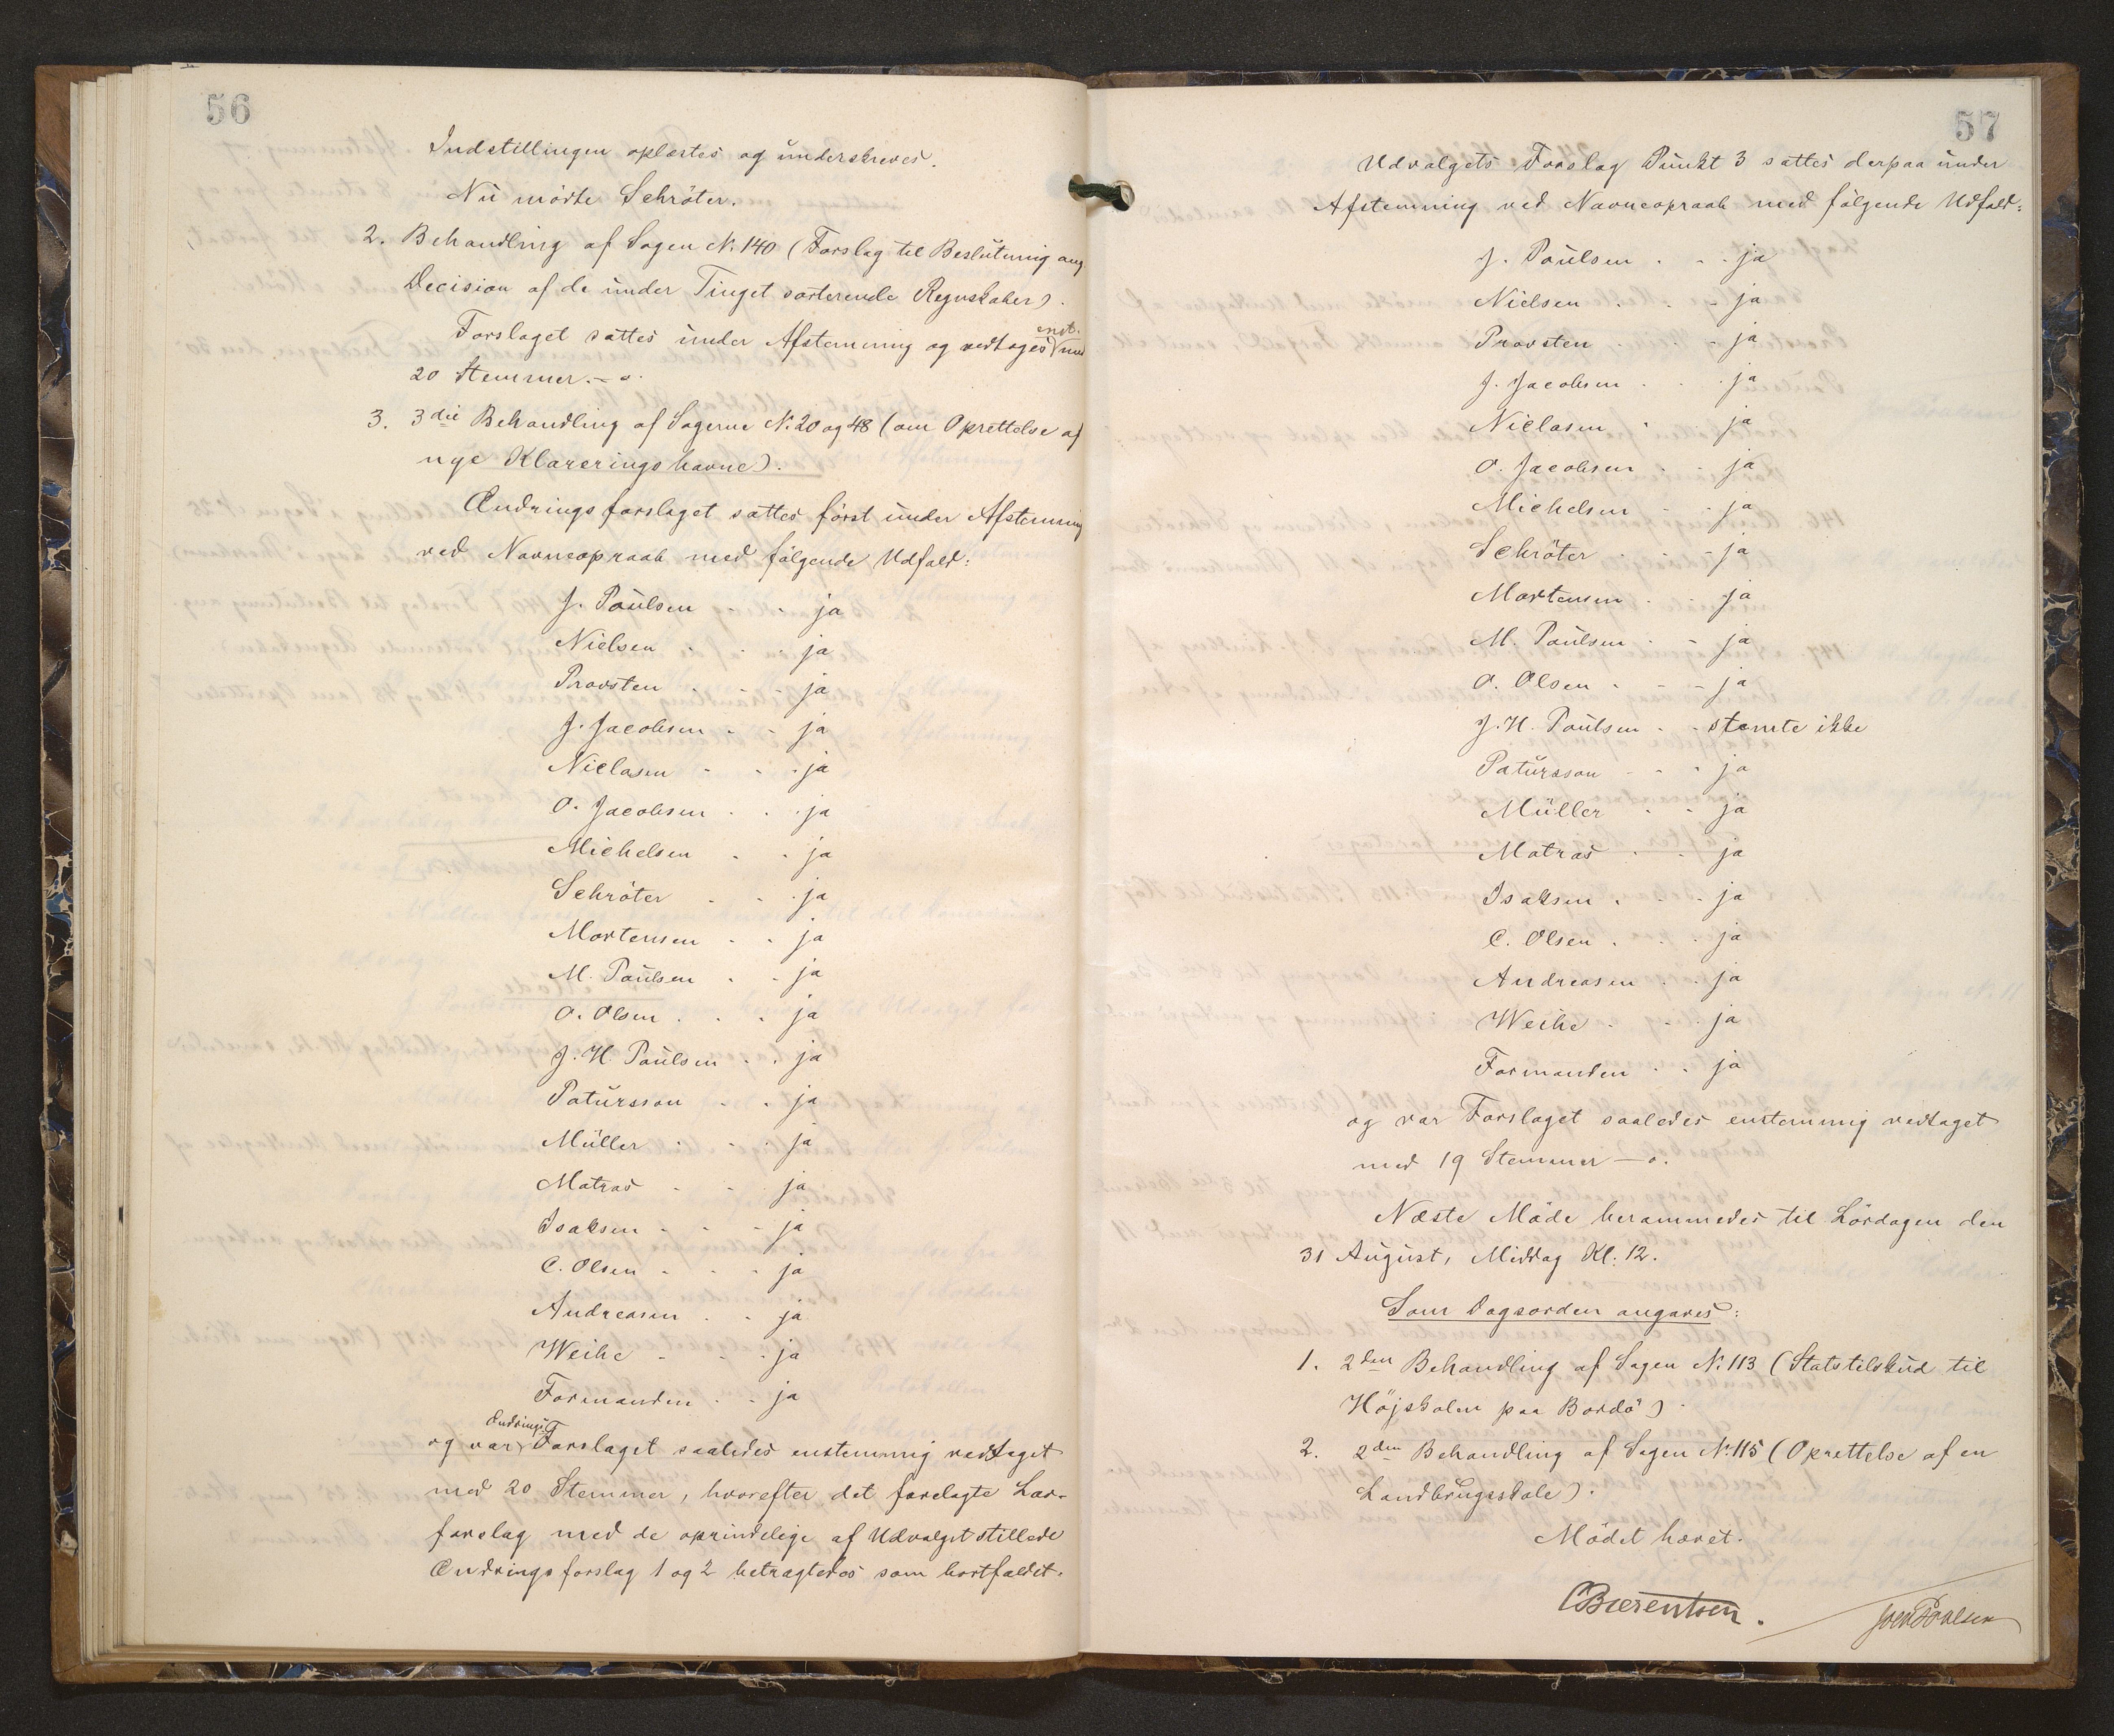 56
Indstillingen oplæstes og underskreves.
Nu mödte Schröter.
2. Behandling af Sagen N. 140 (Forslag til Beslutning ang
Decision af de under Tinget sorterende Regnskaber).
Forslaget sattes under Afstemning og vedtoges enst. med
20 Stemmer.- o.
3. 3die Behandling af Sagerne N. 20 og 48 (om Oprettelse af
nye Klareringshavne).
Ændringsforslaget sattes först under Afstemning
ved Navneopraab med fölgende Udfald:
J. Poulsen - - - ja
Nielsen - - - ja
Provsten - - - ja
J. Jacobsen - - ja
Niclasen - - - ja
O. Jacobsen - - - ja
Michelsen - - ja
Schröter - - - ja
Mortensen - - ja
M. Poulsen - - ja
O. Olsen - - - ja
J. H. Poulsen - - ja
Patursson - - ja
Müller - - - ja
Matras - - ja
Isaksen - - - ja
C. Olsen - - - ja
Andreasen - - ja
Weihe - - - ja
Formanden - - ja
og var Ændrings Forslaget saaledes enstemmig vedtaget
med 20 Stemmer, hvorefter det forelagte Lov-
forslag med de oprindelige af Udvalget stillede
Ændringsforslag 1 og 2 betragtedes som bortfaldet.
57
Udvalgets Forslag Punkt 3 sattes derpaa under
Afstemning ved Navneopraab med fölgende Udfald:
J. Poulsen - - - ja
Nielsen - - - ja
Provsten - - - ja
J. Jacobsen - - - ja
Niclasen - - ja
O. Jacobsen - - ja
Michelsen - - ja
Schröter - - - ja
Mortensen - - ja
M. Poulsen - - ja
O. Olsen - - - ja
J. H. Poulsen - - stemte ikke
Patursson - - - ja
Müller - - ja
Matras - - ja
Isaksen - - - ja
C. Olsen - - - ja
Andreasen - - ja
Weihe - - - ja
Formanden - - ja
og var Forslaget saaledes enstemmig vedtaget
med 19 Stemmer - o.
Næste Möde berammedes til Lördagen den
31 August, Middag Kl. 12.
Som Dagsorden angaves:
1. 2den Behandling af Sagen N. 113 (Statstilskud til
Höjskolen paa Bordö).
2. 2den Behandling af Sagen N. 115 (Oprettelse af en
Landbrugsskole).
Mödet hævet.
CBærentsen. Joen Poulsen